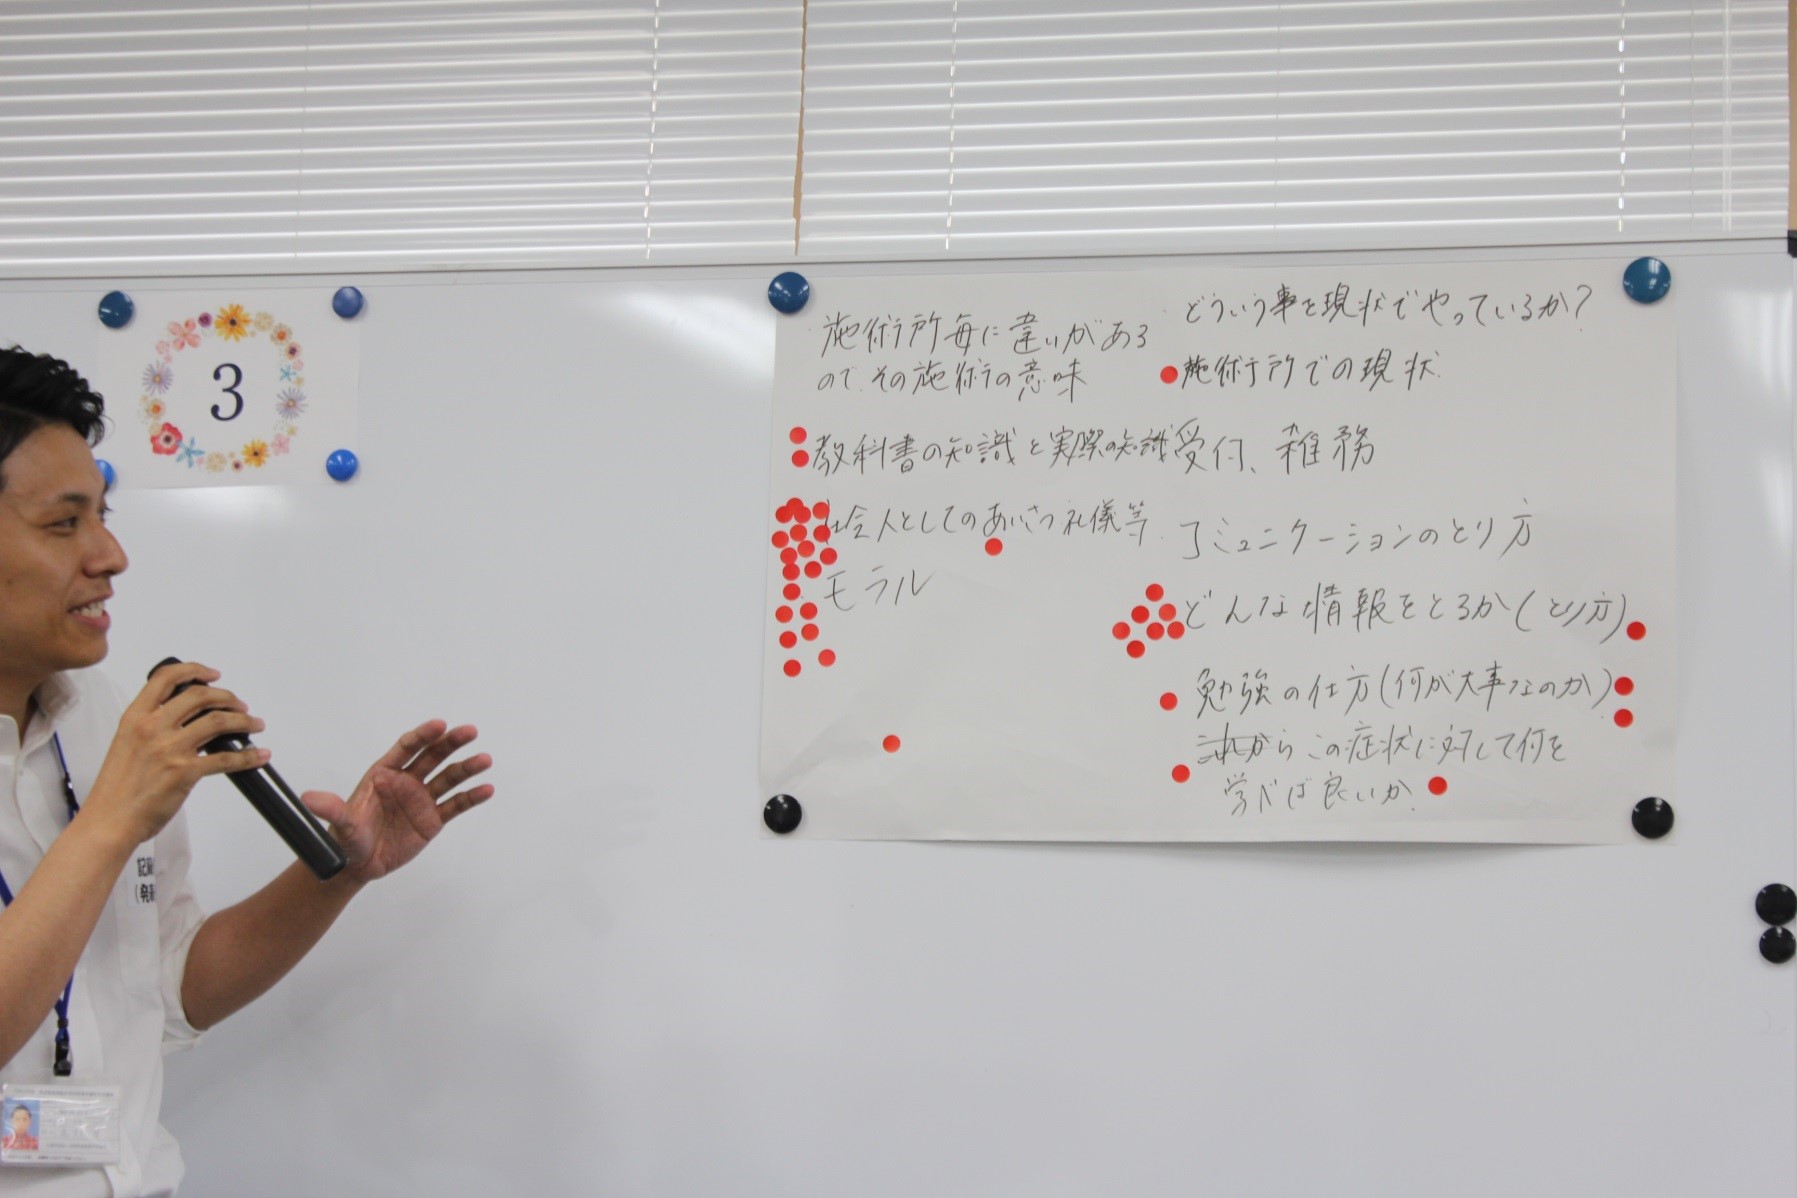 3
施術所毎に違いがある
ので、その施術の意味
教科書の知識と実際の知識
社会人としてのあいさつ礼儀等
モラル
どういう事を現状でやっているか?
施術所での現状
受付、雑務
コミュニケーションのとり方
どんな情報をとるか(とり方)
勉強の仕方(何が大事なのか)
これから この症状に対して何を
学べば良いか